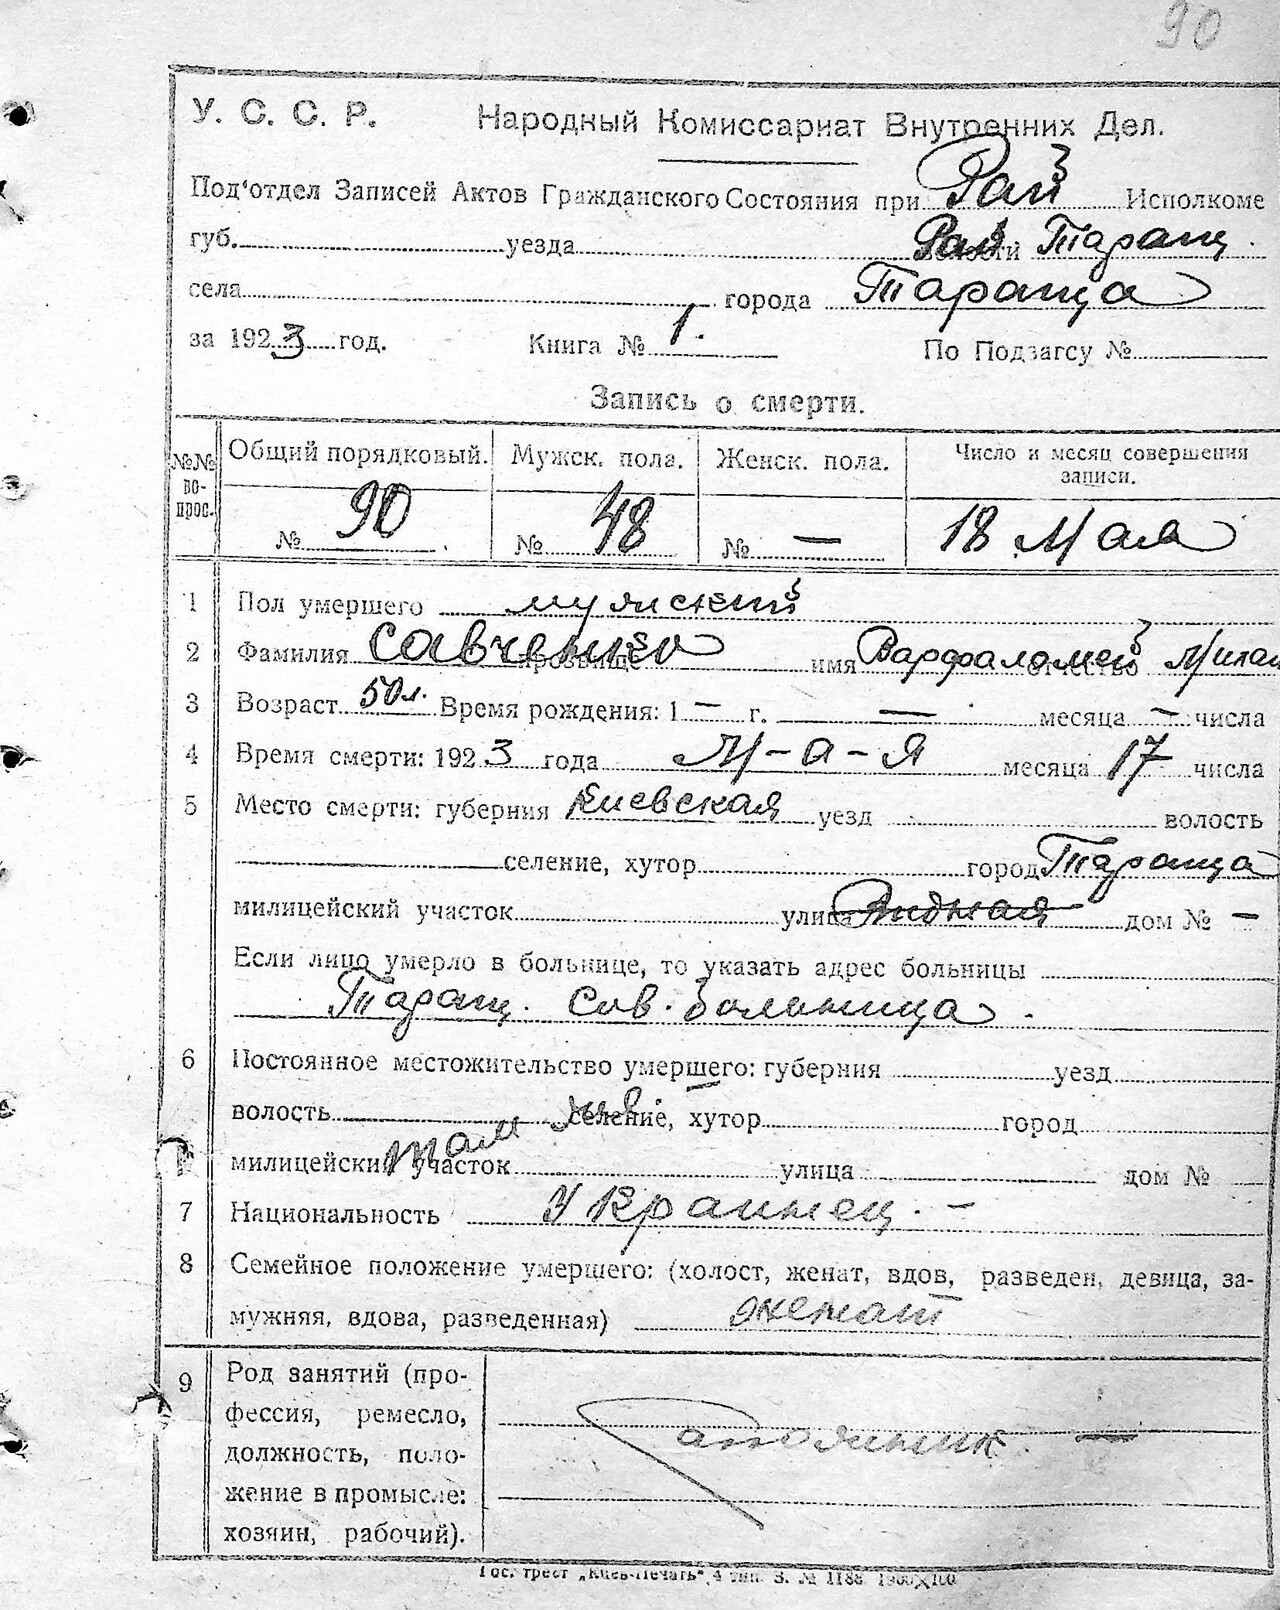 90
У. С. С. Р. Народный Комиссариат Внутренних Дел.
Под'отдел Записей Актов Гражданского Состояния при Рай Исполкоме
губ. уезда Рай Таращ.
села города Тараща
за 1923 год. Книга № 1. По Подзагсу №
Запись о смерти.
№№ вопрос. Общий порядковый. Мужск. пола. Женск. пола. Число и месяц совершения записи.
№ 90 № 48 № — 18 Мая
1 Пол умершего мужский
2 Фамилия Савченко прозвище имя Варфаламей отчество
3 Возраст 50 л. Время рождения: 1 — г. — месяца — числа
4 Время смерти: 1923 года М-а-я месяца 17 числа
5 Место смерти: губерния Киевская уезд волость
селение, хутор город Тараща
милицейский участок улица дом № —
Если лицо умерло в больнице, то указать адрес больницы
Таращ. Сов. больница.
6 Постоянное местожительство умершего: губерния уезд
волость селение, хутор город
там же
милицейский участок улица дом №
7 Национальность Украинец. —
8 Семейное положение умершего: (холост, женат, вдов, разведен, девица, за-
мужняя, вдова, разведенная) женат
9 Род занятий (про-
фессия, ремесло,
должность, поло-
жение в промысле:
хозяин, рабочий).
Гос. трест „Киев-Печать“ 4 тип. З. № 1188